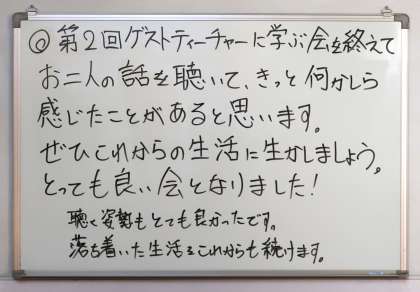 ◎第2回ゲストティーチャーに学ぶ会を終えて
お二人の話を聴いて、きっと何かしら
感じたことがあると思います。
ぜひこれからの生活に生かしましょう。
とっても良い会となりました!
聴く姿勢もとても良かったです。
落ち着いた生活をこれからも続けます。